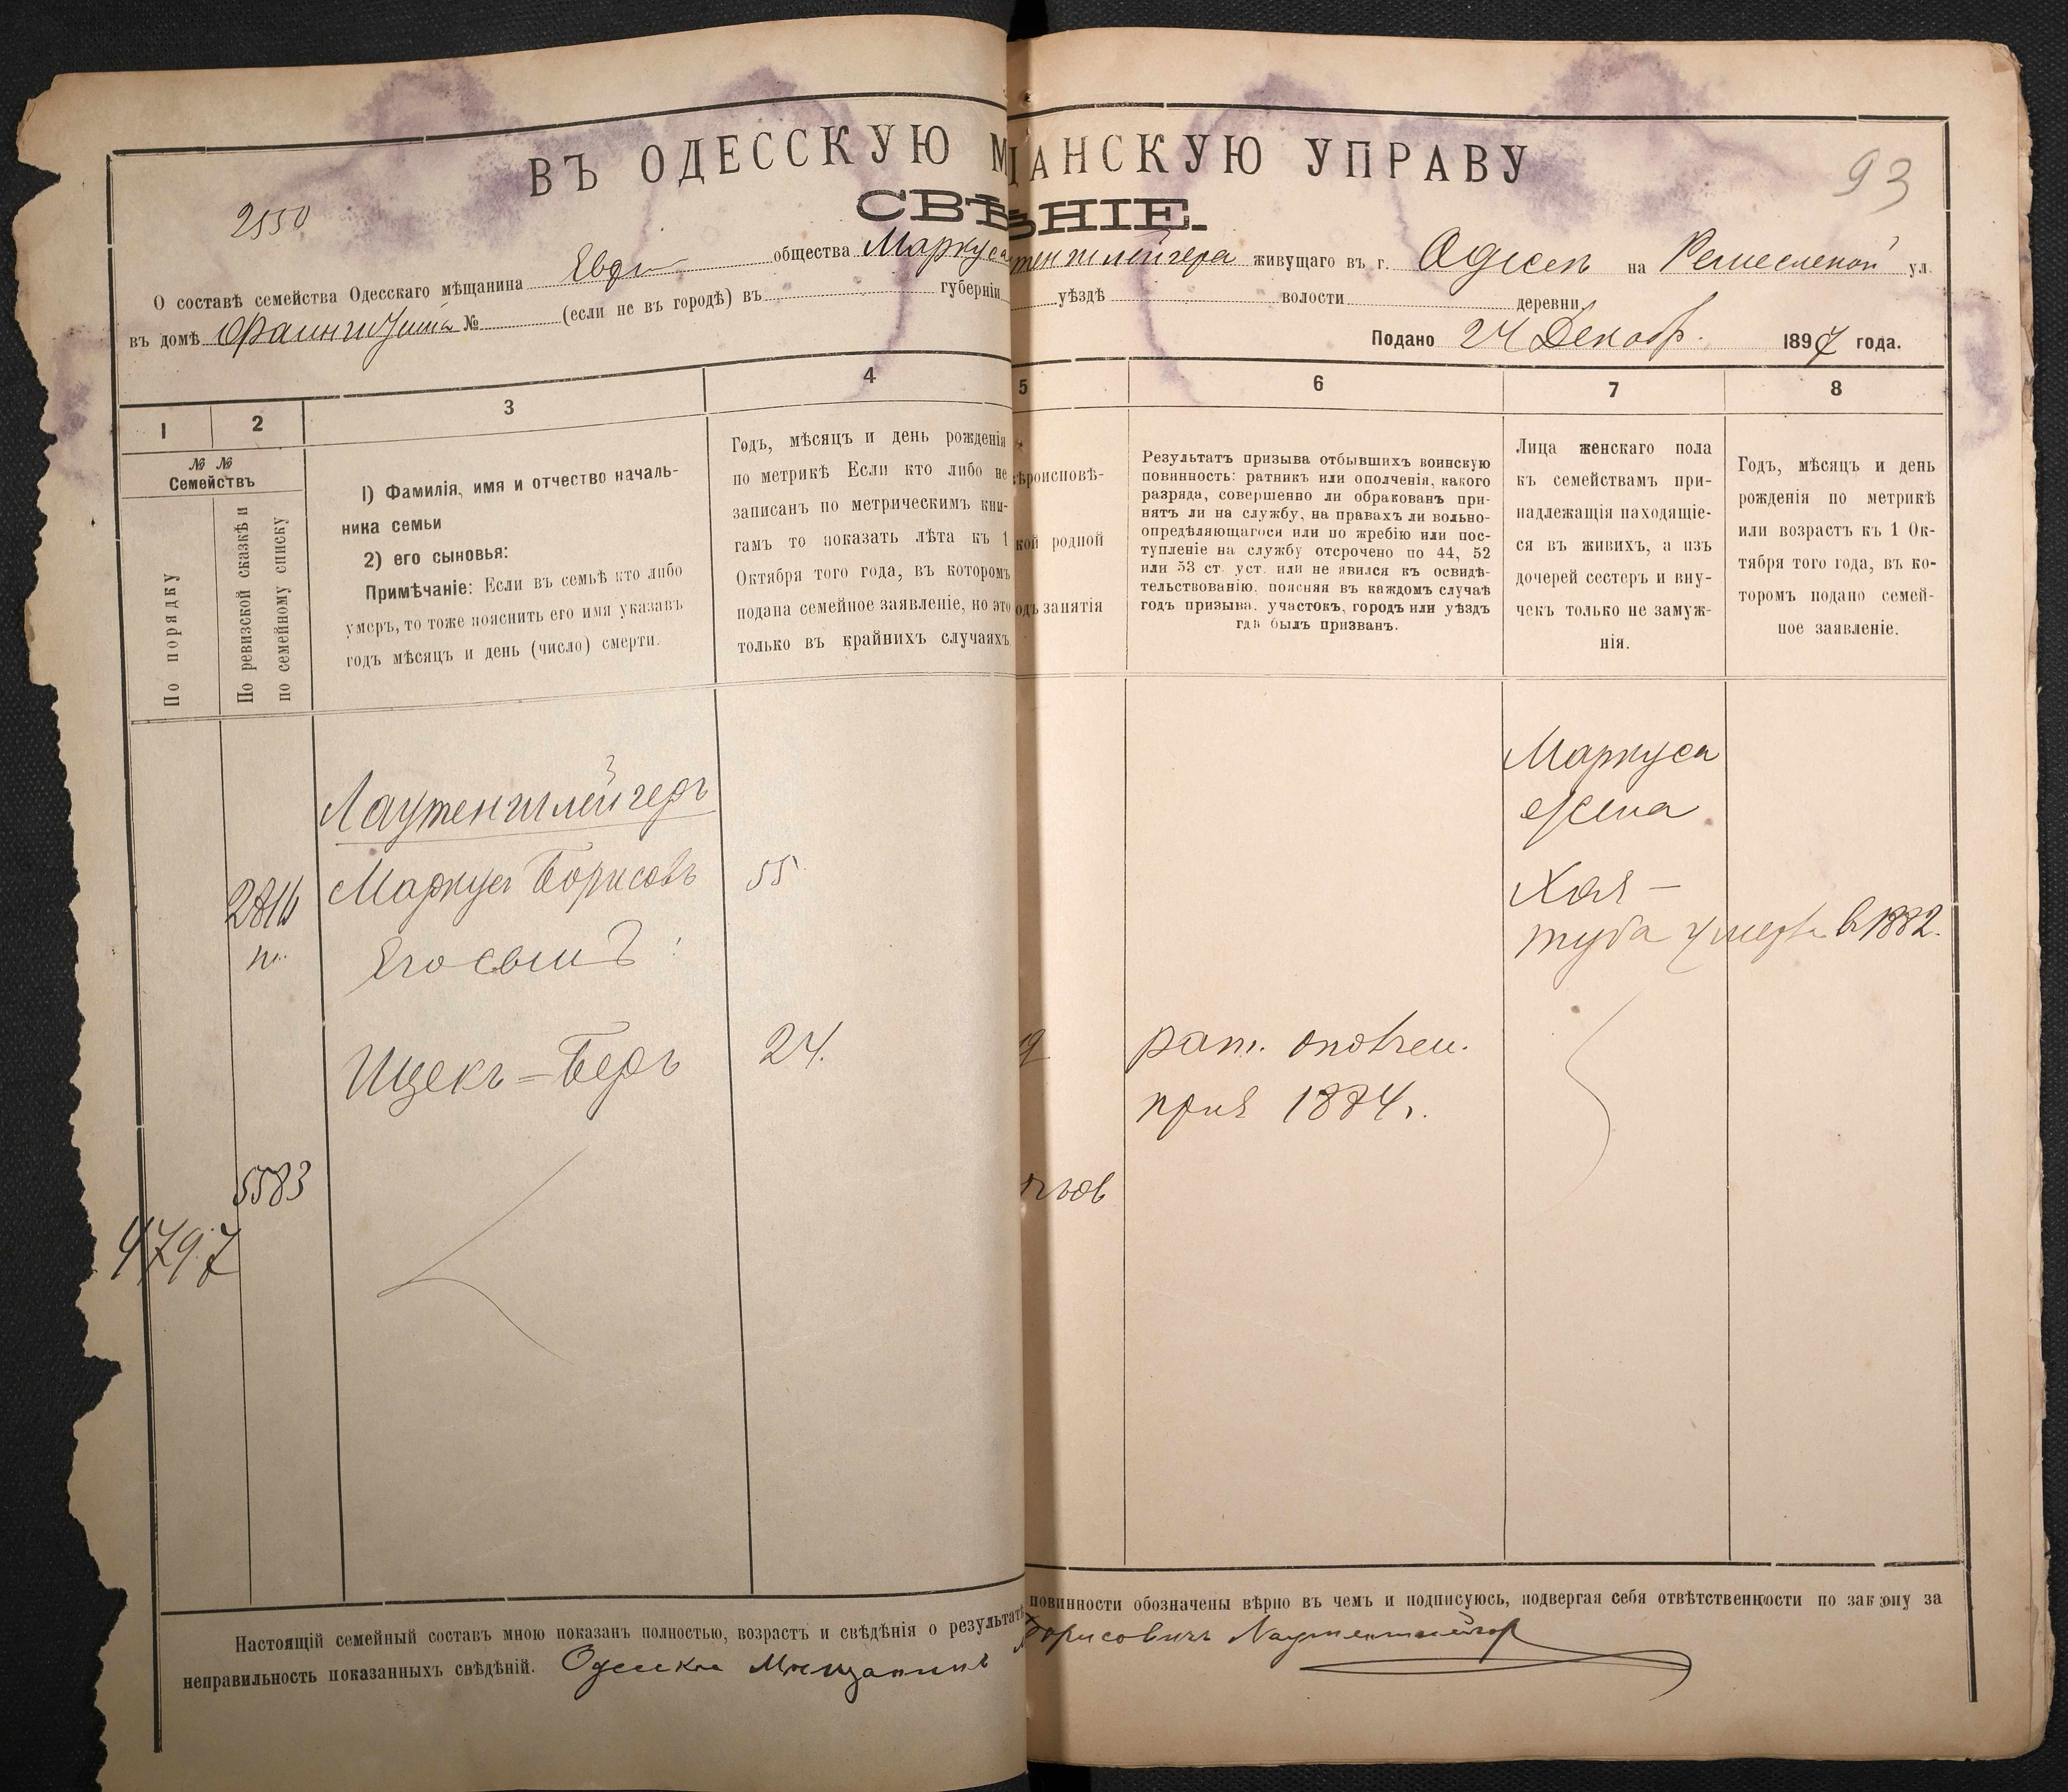 ВЪ ОДЕССКУЮ М ЩАНСКУЮ УПРАВУ
93
2550
СВѢ ѢНІЕ.
О составѣ семейства Одесскаго мѣщанина общества Маркуса теншлейгера живущаго въ г. Одессѣ на Ремесленой ул.
въ домѣ № (если не въ городѣ) въ губерніи уѣздѣ волости деревни
Подано 24 Декабр. 1897 года.
1 2 3 4 5 6 7 8
№ № Семействъ
По порядку
По ревизской сказкѣ и
по семейному списку
1) Фамилія, имя и отчество началь-
ника семьи
2) его сыновья:
Примѣчаніе: Если въ семьѣ кто либо
умеръ, то тоже пояснить его имя указавъ
годъ мѣсяцъ и день (число) смерти.
Годъ, мѣсяцъ и день рожденія
по метрикѣ Если кто либо не
записанъ по метрическимъ кни-
гамъ то показать лѣта къ 1
Октября того года, въ которомъ
подана семейное заявленіе, но это
только въ крайнихъ случаяхъ
ѣроисповѣ-
кой родной
одъ занятія
Результатъ призыва отбывшихъ воинскую
повинность: ратникъ или ополченія, какого
разряда, совершенно ли обракованъ при-
нятъ ли на службу, на правахъ ли вольно-
опредѣляющагося или по жребію или пос-
тупленіе на службу отсрочено по 44, 52
или 53 ст. уст. или не явился къ освидѣ-
тельствованію, поясняя въ каждомъ случаѣ
годъ призыва, участокъ, городъ или уѣздъ
гдѣ былъ призванъ.
Лица женскаго пола
къ семействамъ при-
надлежащія находящіе-
ся въ живихъ, а изъ
дочерей сестеръ и вну-
чекъ только не замуж-
нія.
Годъ, мѣсяцъ и день
рожденія по метрикѣ
или возрастъ къ 1 Ок-
тября того года, въ ко-
торомъ подано семей-
ное заявленіе.
Лаутеншлейгеръ
Маркуса
жена
2816
Маркус Борисовъ 55
Хая —
Его сынъ:
туба умерла в 1882.
Ицекъ=Беръ 24.
рат. ополчен.
приз 1894 г.
5583
4797
Настоящій семейный составъ мною показанъ полностью, возрастъ и свѣдѣнія о результатѣ повинности обозначены вѣрно въ чемъ и подписуюсь, подвергая себя отвѣтственности по закону за
неправильность показанныхъ свѣдѣній. Одесскій Мѣщанинъ Борисовичъ Лаутеншлейгер